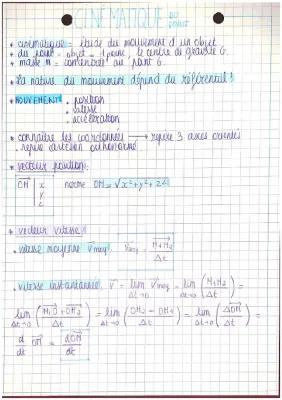 CINÉMATIQUE DU POINT
* cinématique = l'étude du mouvement d'un objet
* du point = objet = 1 point, le centre de gravité G.
* masse m = concentrée au point G.
* La nature du mouvement dépend du référentiel !
* MOUVEMENT . position
. vitesse
. accélération
* connaître les coordonnées → repère 3 axes orientés
. repère cartésien orthonormé.
* vecteur position:
OM→ | x norme OM = √x²+y²+z²
y
z
* vecteur vitesse :
. vitesse moyenne V→moy. V→moy = M1M2→ / Δt
. vitesse instantannée. V→ = lim Δt→0 V→moy = lim Δt→0 (M1M2→ / Δt) =
lim Δt→0 (M1O→ + OM2→ / Δt) = lim Δt→0 (OM2→ - OM1→ / Δt) = lim Δt→0 (ΔOM→ / Δt) =
d/dt OM→ = dOM→/dt